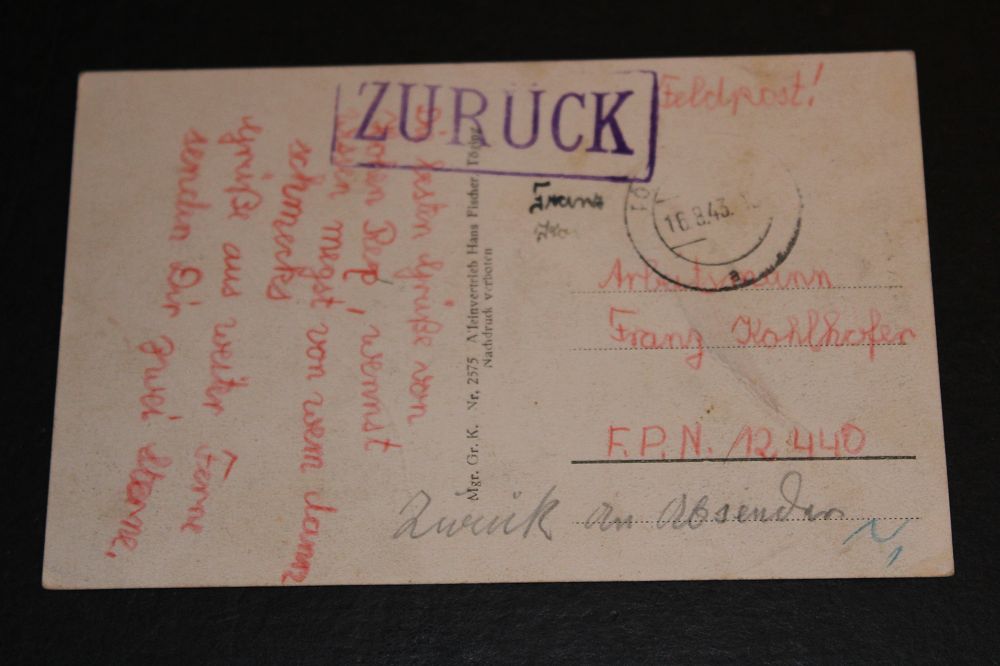 ZURÜCK
Feldpost!
16.8.43.
Franz
Arbeitsmann
Franz Kohlhofer
F.P.N. 12 440
Zurück an Absender
Mgr. Gr. K. Nr. 2575 Alleinvertrieb Hans Fischer, Töging
Nachdruck verboten
besten Grüße von
wennst
magst von wem dann
schmecks
Grüße aus weiter Ferne
senden Dir zwei Sterne,